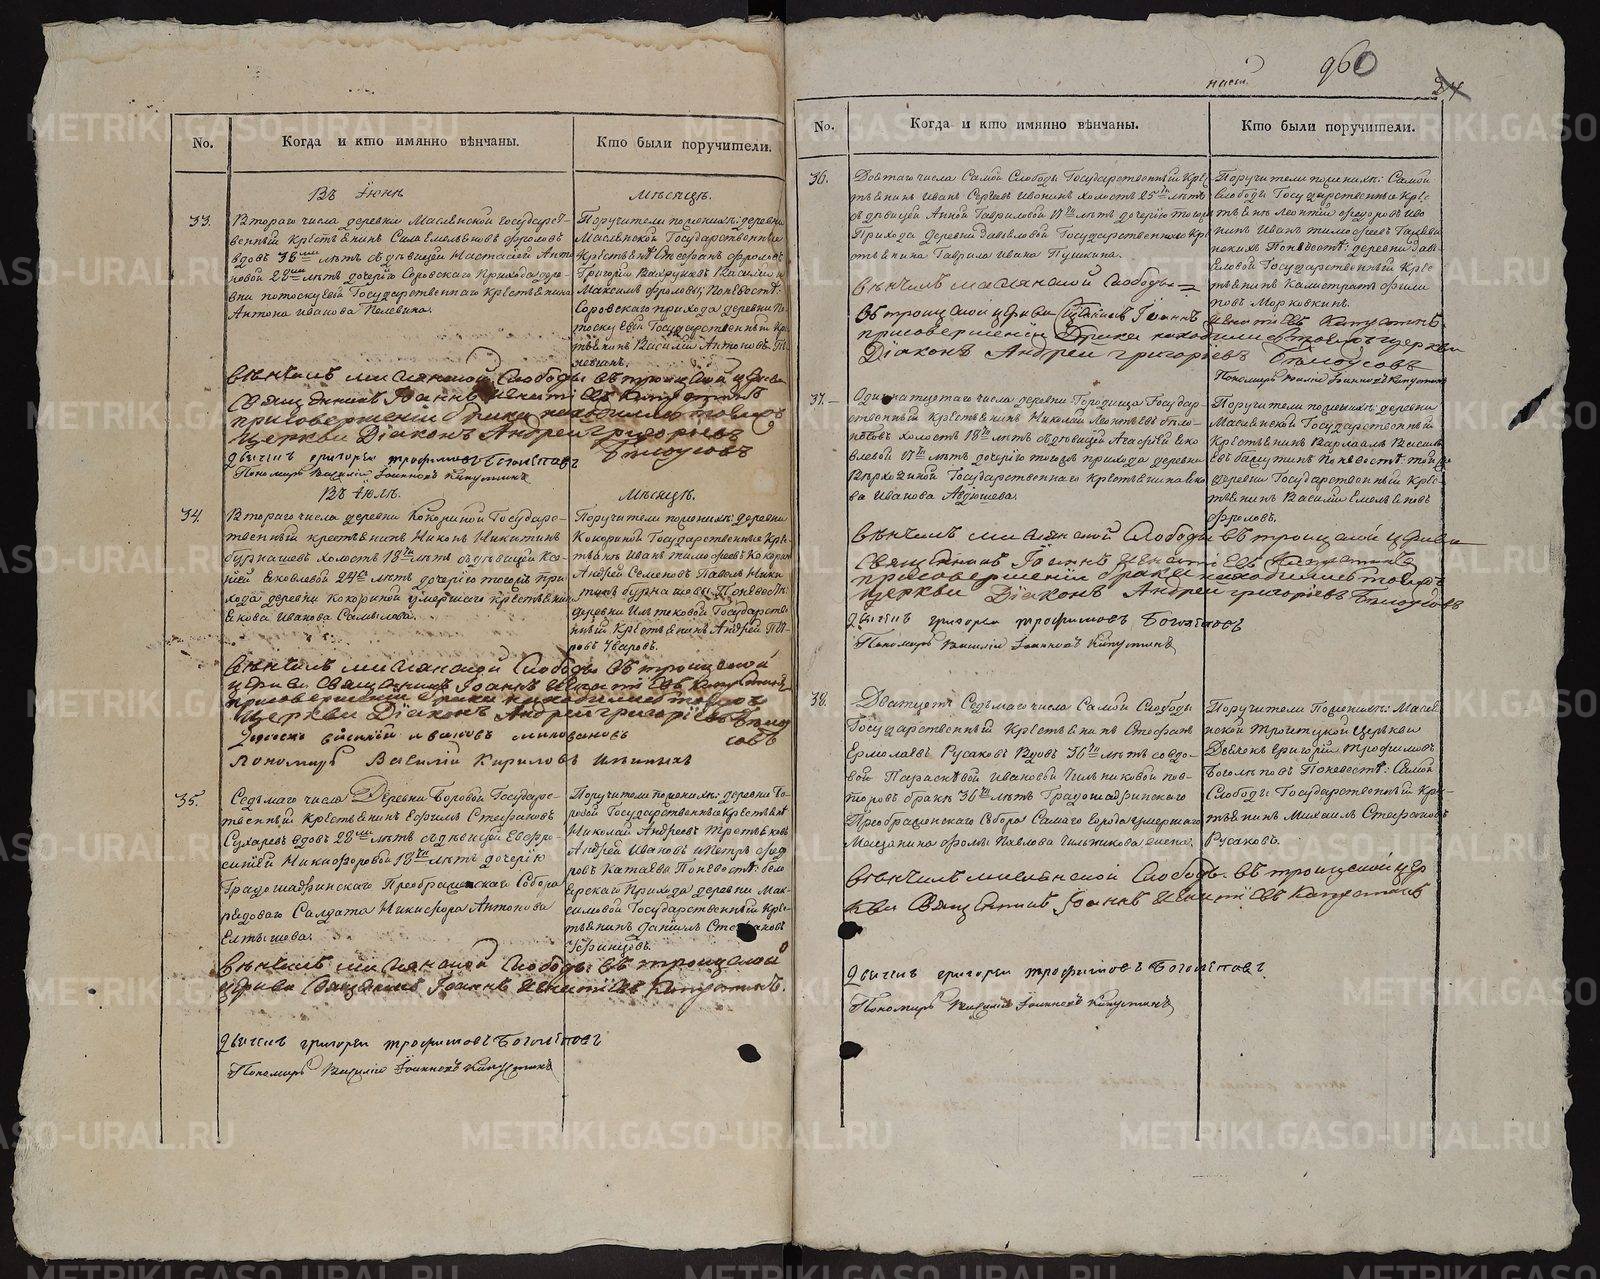 960
24
No.
Когда и кто имянно вѣнчаны.
Кто были поручители.
Въ Іюнѣ
Мѣсяцѣ.
33.
Втораго числа деревни Маслянской Государст-
венный Крестьянинъ Сила Емельяновъ Фроловъ
вдовъ лѣтъ съ дѣвицей Настасьей Анто
новой лѣтъ дочерью Прихода дере-
вни Государственнаго Крестьянина
Антона Иванова Пелевина.
Поручители по женихѣ: деревни
Маслянской Государственные
Крестьяне Стефанъ Фроловъ
Григорій Василій и
Максимъ Фроловы; По невѣстѣ:
прихода деревни По-
Государственный Кре
стьянинъ Василій Антоновъ Пе
левинъ.
Вѣнчалъ Маслянской Слободы въ троицкой церкви
Священникъ Іоаннъ Капустинъ
при совершеніи брака находились тояжъ
Церкви Діаконъ Андрей Григорьевъ
Бѣлоусовъ
Дьячекъ Григорей Трофимовъ Боголѣповъ
Пономарь Василій Іоанновъ Капустинъ
Въ Іюлѣ.
Мѣсяцѣ.
34.
Втораго числа деревни Кокориной Государс-
твенный крестьянинъ Никонъ Никитинъ
Бурнашевъ холостъ 18 лѣтъ съ дѣвицей Ксе-
ніей Яковлевой лѣтъ дочерью тогожъ при
хода деревни Кокориной умершаго крестьянина
Якова Иванова Самылова.
Поручители по женихѣ: деревни
Кокориной Государственные Кре
стьяне Иванъ Тимофеевъ Кокоринъ
Андрей Семеновъ Павелъ Ники
тинъ Бурнашевы По невѣстѣ:
деревни Государстве-
нный Крестьянинъ Андрей Пет-
ровъ Уваровъ.
Вѣнчалъ Маслянской Слободы въ троицкой
церкви Священникъ Іоаннъ Капустинъ
при совершеніи брака находились тояжъ
Церкви Діаконъ Андрей Григорьевъ Бѣлоу
совъ
Василій Ивановъ
Пономарь Василій Кириловъ
35.
Седьмаго числа Деревни Боровой Государс-
твенный Крестьянинъ Ефимъ Стефановъ
Сухаревъ вдовъ лѣтъ съ дѣвицей Евфро-
синіей Никифоровой 18 лѣтъ дочерью
Градошадринскаго Преображенскаго Собора
рядоваго Салдата Никифора Антонова
Елтышева.
Поручители по женихѣ: деревни Бо-
ровой Государственные Крестьяне
Николай Андреевъ Третьяковъ
Андрей Ивановъ и Петръ Фед
ровъ Катаевы По невѣстѣ:
Прихода деревни Мак-
симовой Государственный Кре-
стьянинъ Данилъ Стефановъ
Вѣнчалъ Маслянской Слободы въ троицкой
церкви Священникъ Іоаннъ Капустинъ.
Дьячекъ Григорей Трофимовъ Боголѣповъ
Пономарь Василій Іоанновъ Капустинъ
No.
Когда и кто имянно вѣнчаны.
Кто были поручители.
36.
числа Самой Слободы Государственный Крес
тьянинъ Иванъ Сергѣевъ Ивонинъ холостъ 25 лѣтъ
съ дѣвицей Анной Гавриловой 17 лѣтъ дочерью тогожъ
Прихода Деревни Государственнаго Кре
стьянина Гаврила Иванова Пушкина.
Поручители по женихѣ: Самой
слободы Государственные Кре
стьяне Леонтій Федоровъ Иво
нинъ Иванъ Тимофеевъ
По невѣстѣ: деревни
Государственный Крес
тьянинъ Калистратъ Фили
повъ Морковкинъ.
Вѣнчалъ Маслянской Слободы
въ троицкой церкви Священникъ Іоаннъ Капустинъ
при совершеніи брака находились тояжъ церкви
Діаконъ Андрей Григорьевъ Бѣлоусовъ
Пономарь Василій Іоанновъ Капустинъ
37.
Одиннатцатаго числа деревни Городища Государ-
ственный Крестьянинъ Николай Леонтьевъ
холостъ 18 лѣтъ съ дѣвицей Агафьей Яко
влевой 17 лѣтъ дочерью тогожъ прихода деревни
Государственнаго Крестьянина Яко
ва Иванова Авдюшева.
Поручители по женихѣ: деревни
Маслянской Государственный
Крестьянинъ Варлаамъ Василь
евъ По невѣстѣ: той же
деревни Государственный Крес-
тьянинъ Василій Емельяновъ
Фроловъ.
Вѣнчалъ Маслянской Слободы въ троицкой церкви
Священникъ Іоаннъ Капустинъ
при совершеніи брака находились тояжъ
Церкви Діаконъ Андрей Григорьевъ Бѣлоусовъ
Дьячекъ Григорей Трофимовъ Боголѣповъ
Пономарь Василій Іоанновъ Капустинъ
38.
Дватцать Седьмаго числа Самой Слободы
Государственный Крестьянинъ Стефанъ
Ермолаевъ Русаковъ Вдовъ 36 лѣтъ со вдо-
вой Параскевой Ивановой вто-
торовъ бракѣ 36 лѣтъ Градошадринскаго
Преображенскаго Собора Самаго города умершаго
Мѣщанина Фомы Павлова жена.
Поручители По женихѣ: Маслян
ской Троицкой Церкви
Дьячекъ Григорій Трофимовъ
Боголѣповъ По невѣстѣ: Самой
Слободы Государственный Кре-
стьянинъ Михаилъ Стефановъ
Русаковъ.
Вѣнчалъ Маслянской Слободы въ троицкой цер
кви Священникъ Іоаннъ Капустинъ
Дьячекъ Григорей Трофимовъ Боголѣповъ
Пономарь Василій Іоанновъ Капустинъ
METRIKI.GASO-URAL.RU